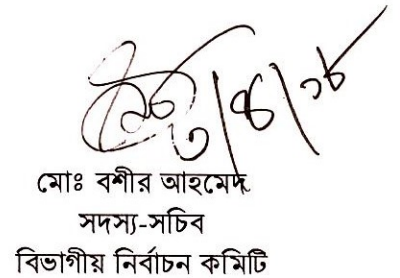 ৩/৪/১৮
মোঃ বশীর আহমেদ
সদস্য-সচিব
বিভাগীয় নির্বাচন কমিটি